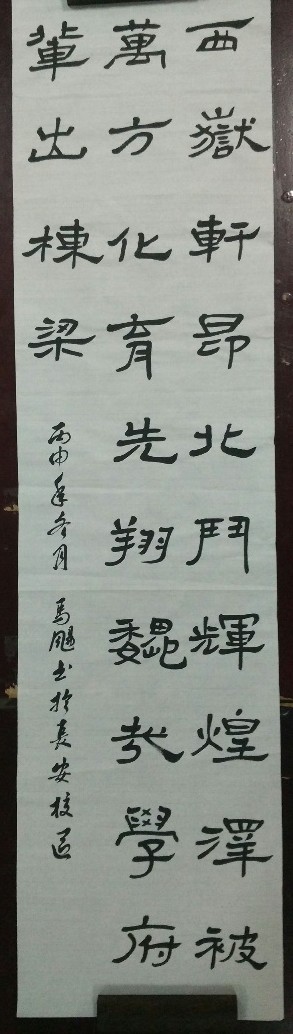 西嶽軒昂北鬥輝煌澤被
萬方化育先翔巍哉學府
輩出棟梁
丙申年冬月 馬颺书於長安校區